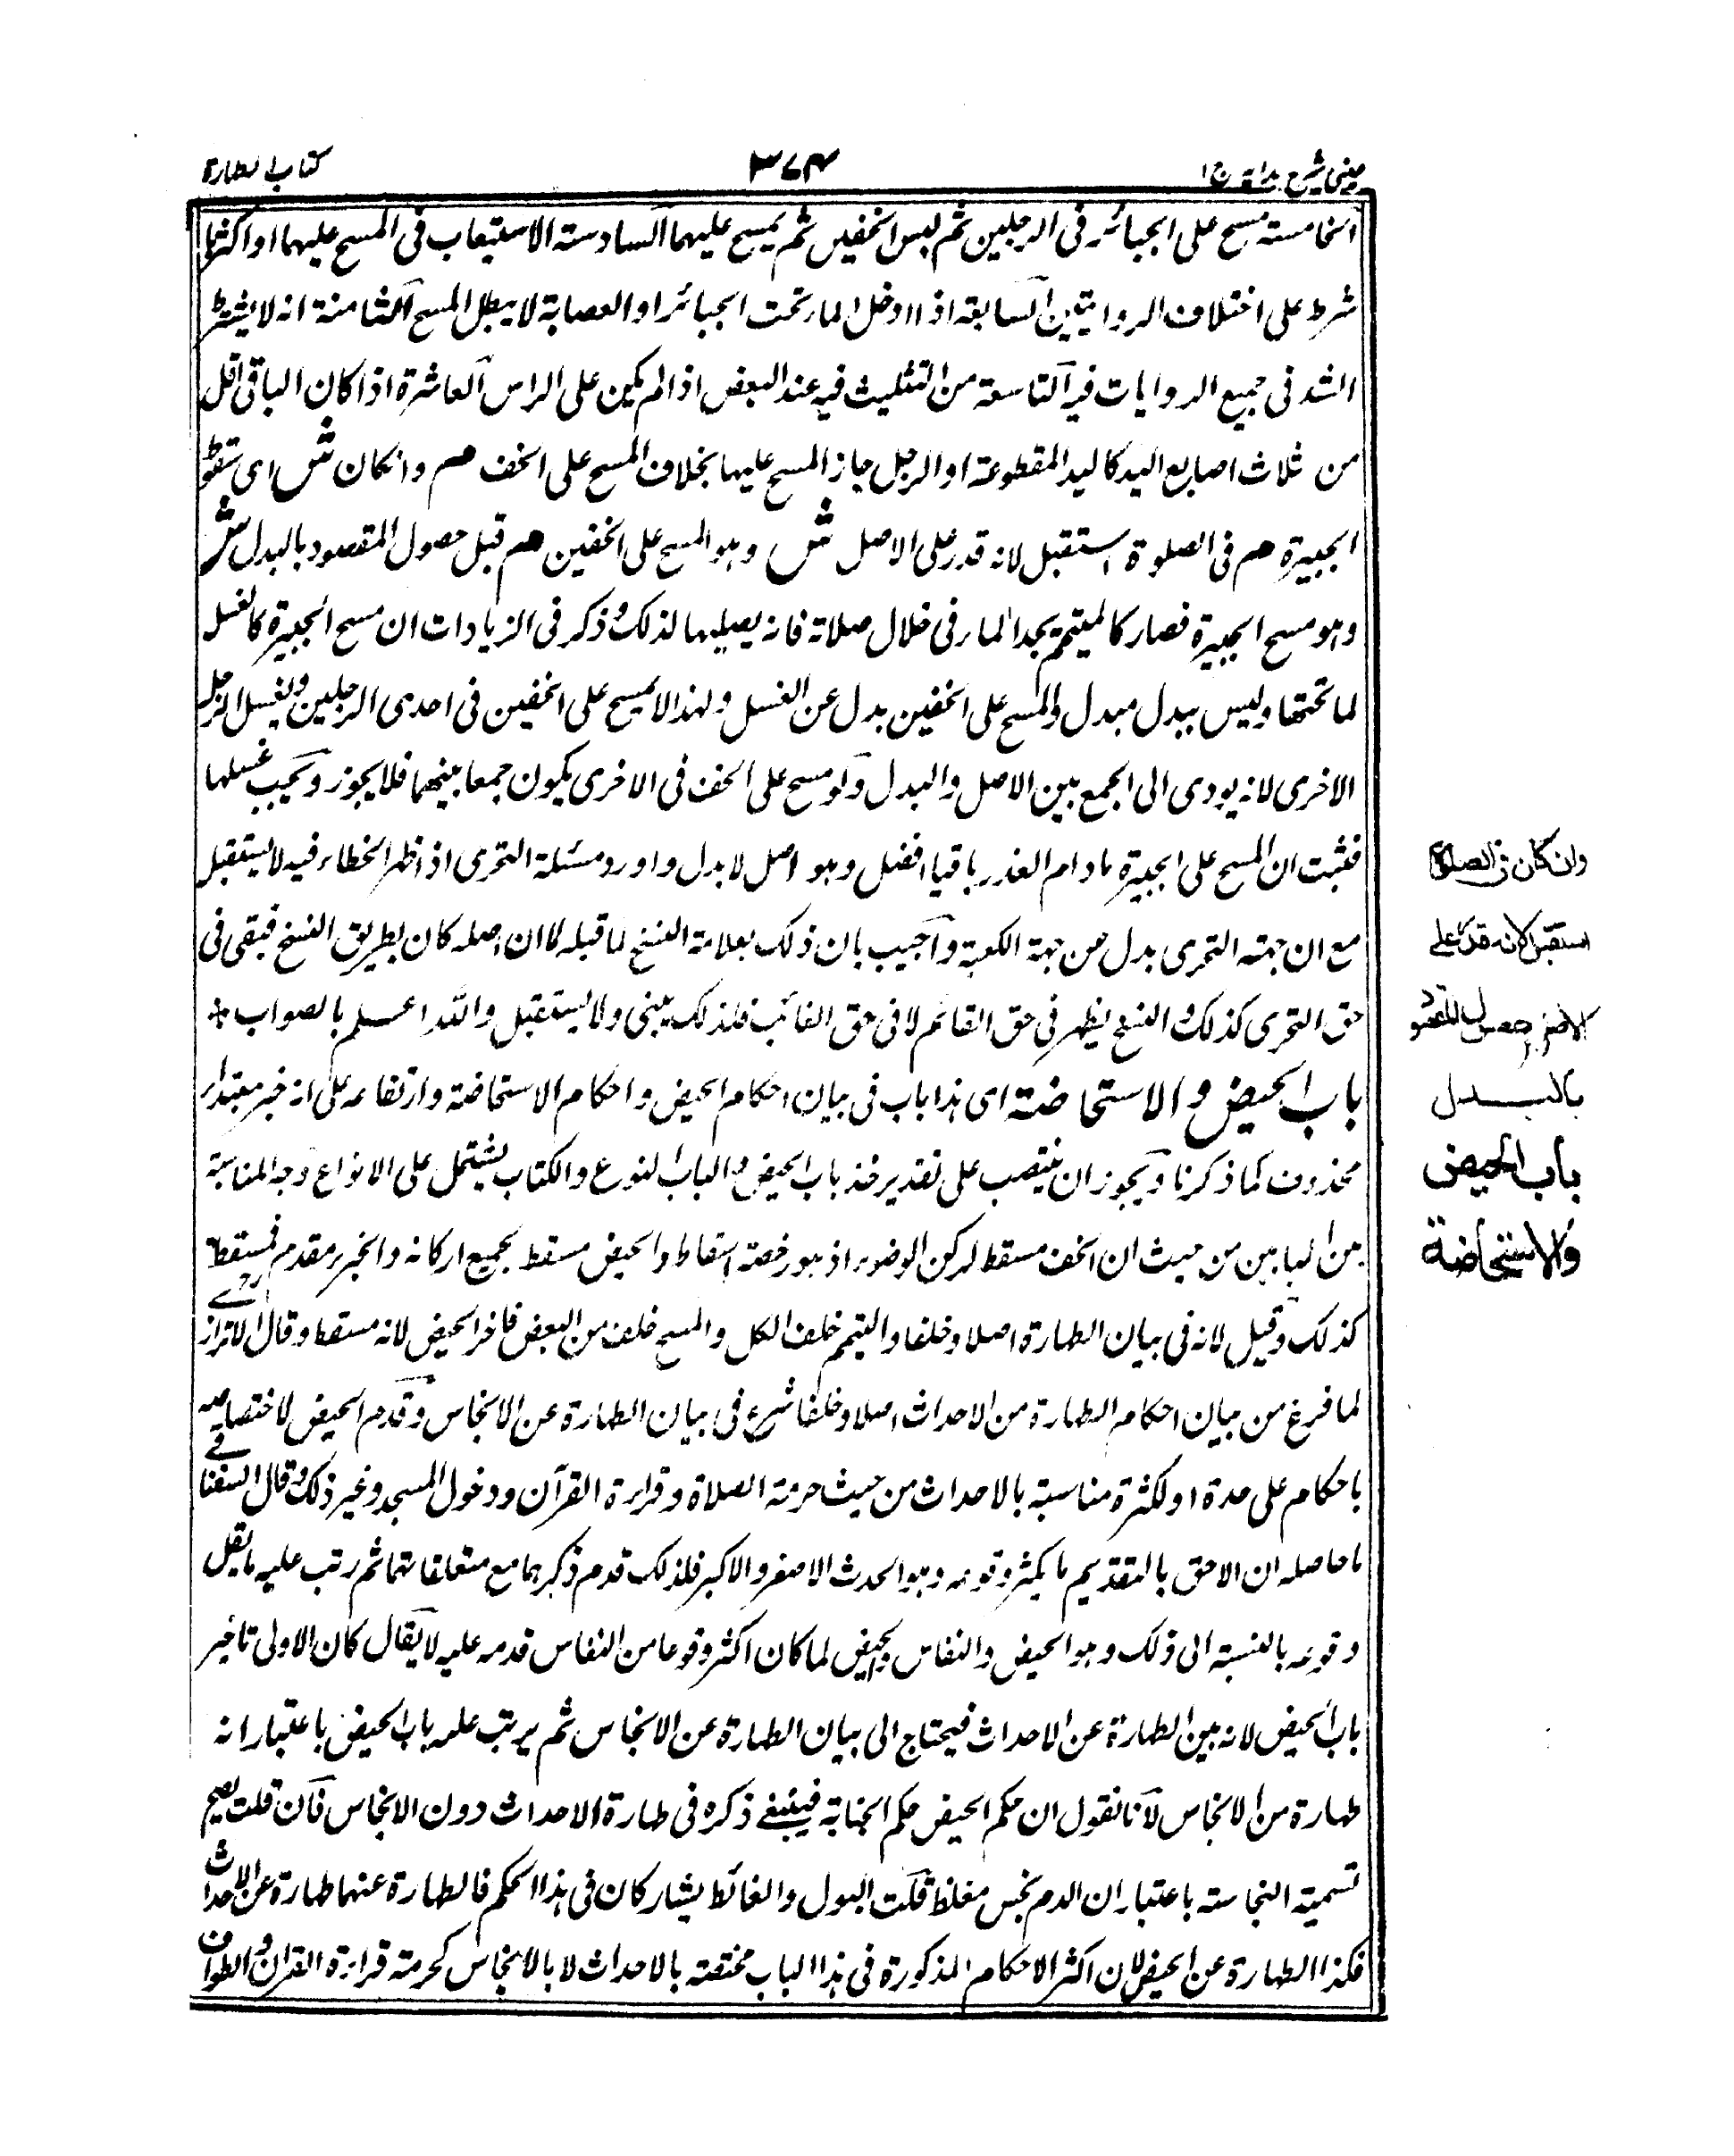 عینی شرح هدایة ج ١
٣٧٤
کتاب الطهارة
الخامسة مسح علی الجبائر فی الرجلین ثم لبس الخفین ثم یمسح علیهما السادسة الاستیعاب فی المسح علیهما او اکثرها
شرط علی اختلاف الروایتین السابعة اذا ادخل الماء تحت الجبائر او العصابة لا یبطل المسح الثامنة انه لا یشترط
الشد فی جمیع الروایات فیه التاسعة من التثلیث فیه عند البعض اذا لم یکن علی الراس العاشرة اذا کان الباقی اقل
من ثلاث اصابع الید کالید المقطوعة او الرجل جاز المسح علیها بخلاف المسح علی الخف م وان کان ش ای سقوط
الجبیرة م فی الصلوة استقبل لانه قدر علی الاصل ش وهو المسح علی الخفین م قبل حصول المقصود بالبدل ش
وهو مسح الجبیرة فصار کالمتیمم یجد الماء فی خلال صلاته فانه یصلیها لذلک وذکر فی الزیادات ان مسح الجبیرة کالغسل
لما تحتها ولیس ببدل مبدل والمسح علی الخفین بدل عن الغسل ولهذا لا یمسح علی الخفین فی احدی الرجلین ویغسل الرجل
الاخری لانه یودی الی الجمع بین الاصل والبدل ولو مسح علی الخف فی الاخری یکون جمعا بینهما فلا یجوز ویجب غسلها
فثبت ان المسح علی الجبیرة ما دام العذر باقیا افضل وهو اصل لا بدل واورد مسئلة التحری اذا ظهر الخطاء فیه لا یستقبل
مع ان جهة التحری بدل عن جهة الکعبة واجیب بان ذلک بعلامة النسخ لما قبله لا ان اصله کان بطریق النسخ فبقی فی
حق التحری کذلک النسخ یظهر فی حق القائم لا فی حق الفائت فلذلک یبنی ولا یستقبل والله اعلم بالصواب *
باب الحیض والاستحاضة ای هذا باب فی بیان احکام الحیض و احکام الاستحاضة وارتفاعه علی انه خبر مبتداء
محذوف کما ذکرنا ویجوز ان ینتصب علی تقدیر خذ باب الحیض و الباب النوع والکتاب یشتمل علی الانواع وجه المناسبة
بین البابین من حیث ان الخف مسقط لرکن الوضوء اذ هو رخصة اسقاط والحیض مسقط لجمیع ارکانه والخبر مقدم فمسقطه
کذلک وقیل لانه فی بیان الطهارة اصلا وخلفا والتیمم خلف الکل والمسح خلف من البعض فاخر الحیض لانه مسقط وقال الاترازی رح
لما فرغ من بیان احکام الطهارة من الاحداث اصلا وخلفا شرع فی بیان الطهارة عن الانجاس وقدم الحیض لاختصاصه
باحکام علی حدة او لکثرة مناسبة بالاحداث من حیث حرمة الصلاة وقراءة القرآن ودخول المسجد وغیر ذلک وقال السغناقی
ما حاصله ان الاحق بالتقدیم ما یکثر وقوعه وهو الحدث الاصغر والاکبر فلذلک قدم ذکرهما مع متعلقاتهما ثم رتب علیه ما یقل
وقوعه بالنسبة الی ذلک وهو الحیض والنفاس والحیض لما کان اکثر وقوعا من النفاس قدمه علیه لا یقال کان الاولی تاخیر
باب الحیض لانه بین الطهارة عن الاحداث فیحتاج الی بیان الطهارة عن الانجاس ثم یرتب علیه باب الحیض باعتبار انه
طهارة من الانجاس لانا نقول ان حکم الحیض حکم الجنابة فینبغی ذکره فی طهارة الاحداث دون الانجاس فان قلت یصح
تسمیة النجاسة باعتبار ان الدم نجس مغلظ قلت البول والغائط یشارکان فی هذا الحکم فالطهارة عنهما طهارة عن الاحداث
فکذا الطهارة عن الحیض لان اکثر الاحکام المذکورة فی هذا الباب مختصة بالاحداث لا بالانجاس کحرمة قراءة القران والطواف
وان کان فی الصلوة
استقبل لانه قدر علی
الاصل قبل حصول المقصود
بالبدل
باب الحیض
والاستحاضة